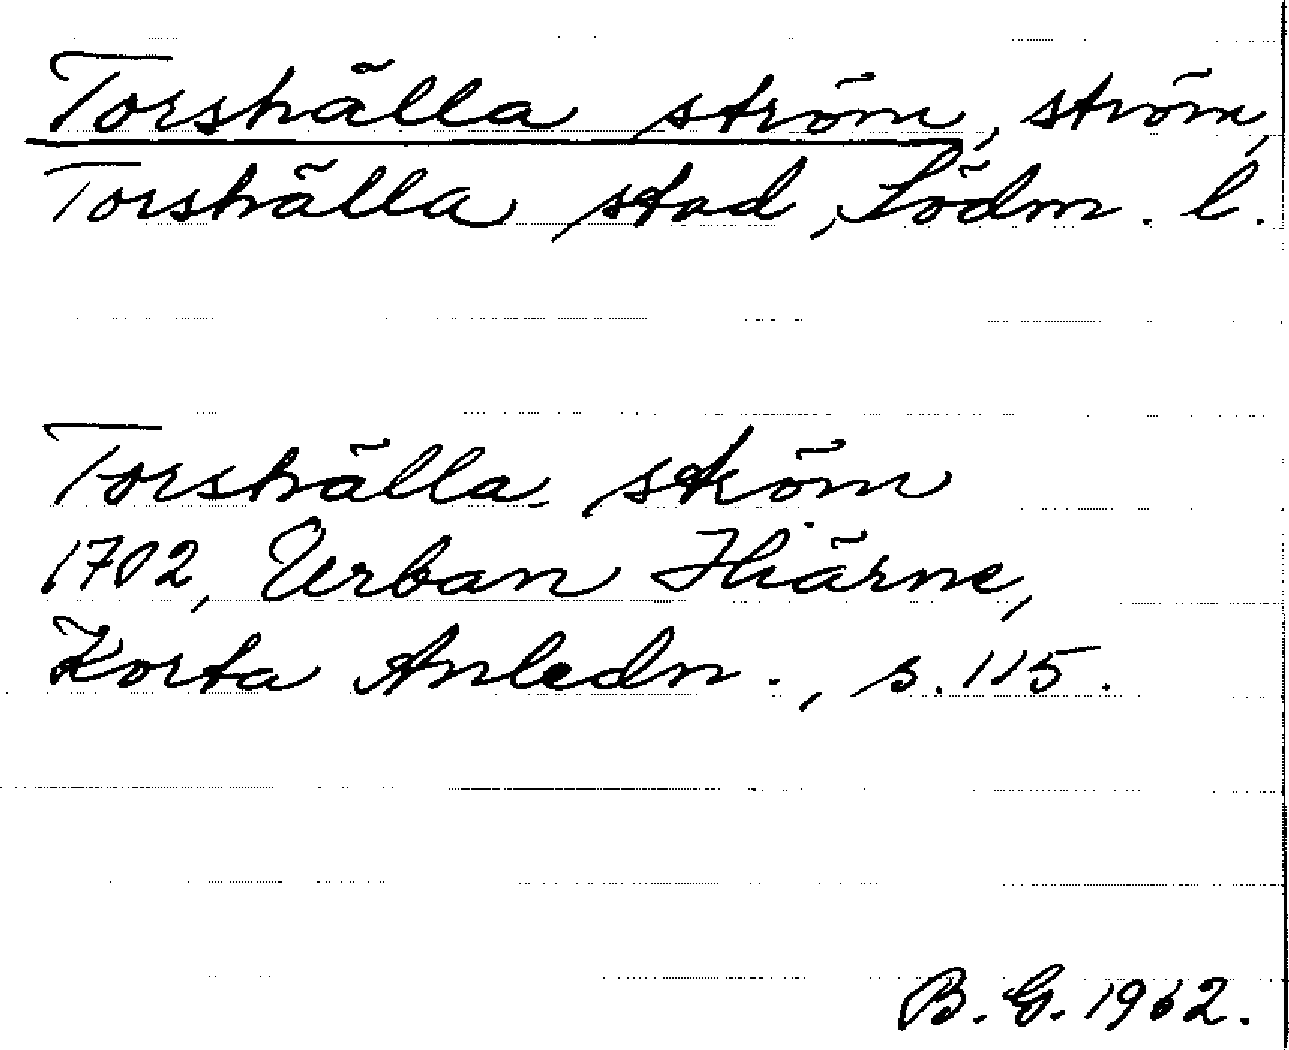 Torshälla ström, ström,
Torshälla stad, Södm. l.
Torshälla ström
1702, Urban Hiärne,
Korta Anledn., s. 115.
B. G. 1962.